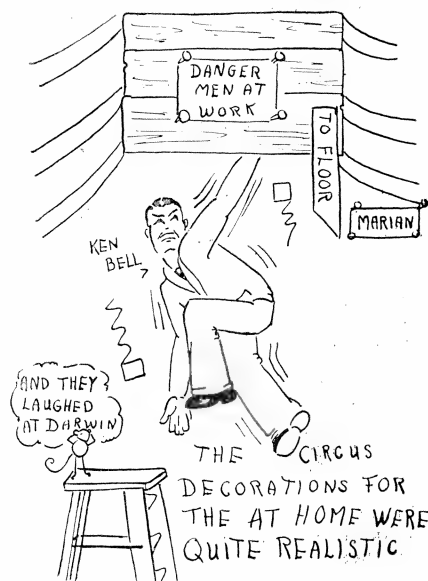 DANGER
MEN AT
WORK
TO FLOOR
MARIAN
KEN
BELL
AND THEY
LAUGHED
AT DARWIN
THE CIRCUS
DECORATIONS FOR
THE AT HOME WERE
QUITE REALISTIC